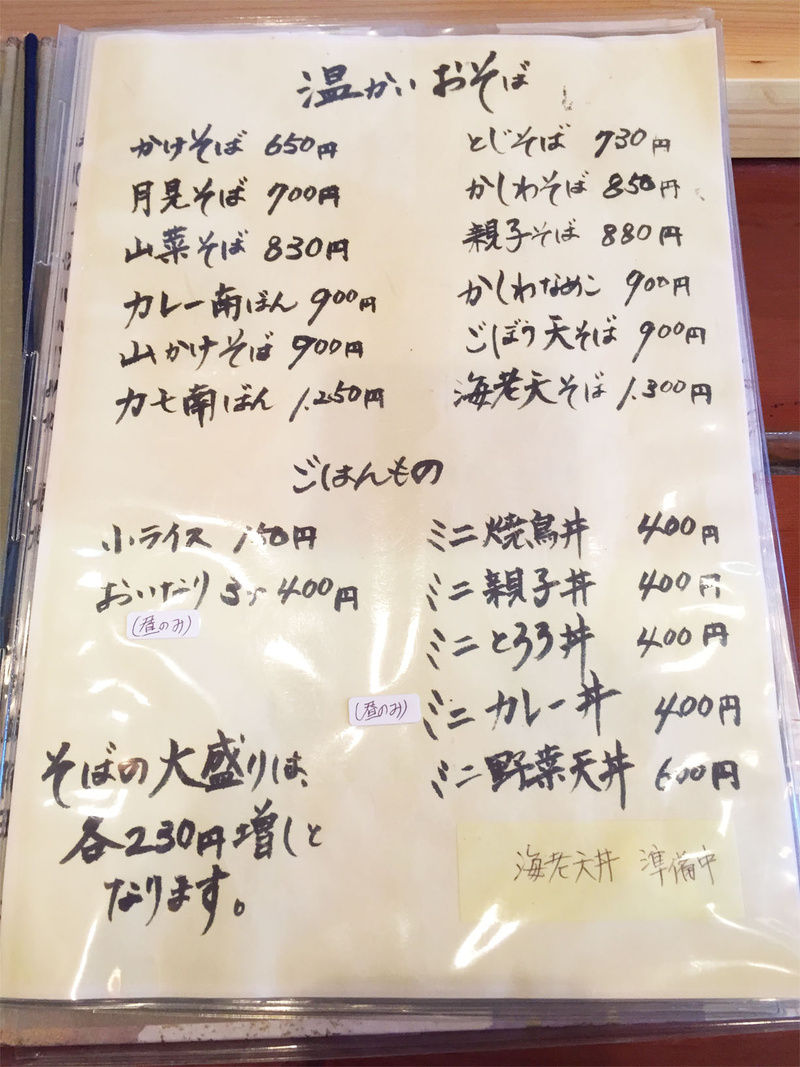 温かいおそば
かけそば 650円
月見そば 700円
山菜そば 830円
カレー南ばん 900円
山かけそば 900円
カモ南ばん 1.250円
とじそば 730円
かしわそば 850円
親子そば 880円
かしわなめこ 900円
ごぼう天そば 900円
海老天そば 1.300円
ごはんもの
小ライス 150円
おいなり 3ヶ 400円
(昼のみ)
ミニ焼鳥丼 400円
ミニ親子丼 400円
ミニとろろ丼 400円
(昼のみ)
ミニカレー丼 400円
ミニ野菜天丼 600円
そばの大盛りは、
各230円増しと
なります。
海老天丼 準備中